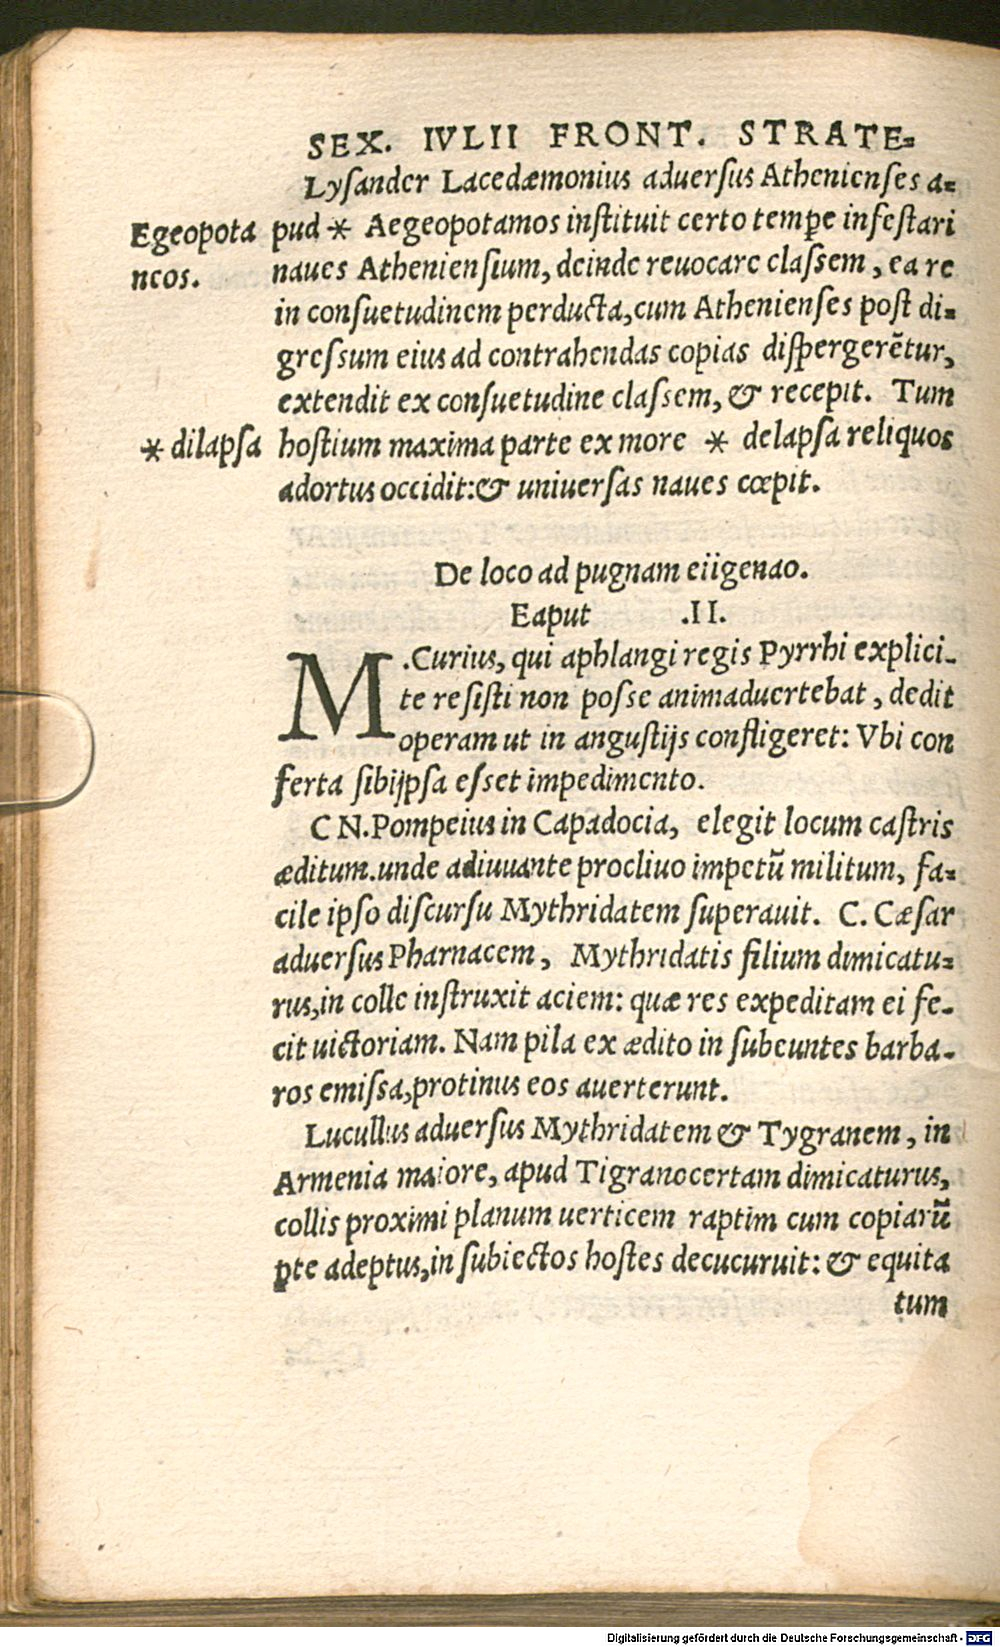 SEX. IVLII FRONT. STRATE=
Lysander Lacedæmonius aduersus Athenienses a=
Egeopota
ncos.
pud * Aegeopotamos instituit certo temꝑe infestari
naues Atheniensium, deinde reuocare classem, ea re
in consuetudinem perducta, cum Athenienses post di=
gressum eius ad contrahendas copias dispergerētur,
extendit ex consuetudine classem, & recepit. Tum
* dilapsa
hostium maxima parte ex more * delapsa reliquos
adortus occidit: & uniuersas naues cœpit.
De loco ad pugnam eiigenao.
Eaput .II.
M.Curius, qui aphlangi regis Pyrrhi explici-
te resisti non posse animaduertebat, dedit
operam ut in angustijs confligeret: Vbi con
ferta sibijpsa esset impedimento.
C N. Pompeius in Capadocia, elegit locum castris
æditum. unde adiuuante procliuo impetū militum, fa=
cile ipso discursu Mythridatem superauit. C. Cæsar
aduersus Pharnacem, Mythridatis filium dimicatu=
rus, in colle instruxit aciem: quæ res expeditam ei fe-
cit uictoriam. Nam pila ex ædito in subeuntes barba-
ros emissa, protinus eos auerterunt.
Lucullus aduersus Mythridatem & Tygranem, in
Armenia maiore, apud Tigranocertam dimicaturus,
collis proximi planum uerticem raptim cum copiarū
ꝑte adeptus, in subiectos hostes decucuruit: & equita
tum
Digitalisierung gefördert durch die Deutsche Forschungsgemeinschaft - DFG